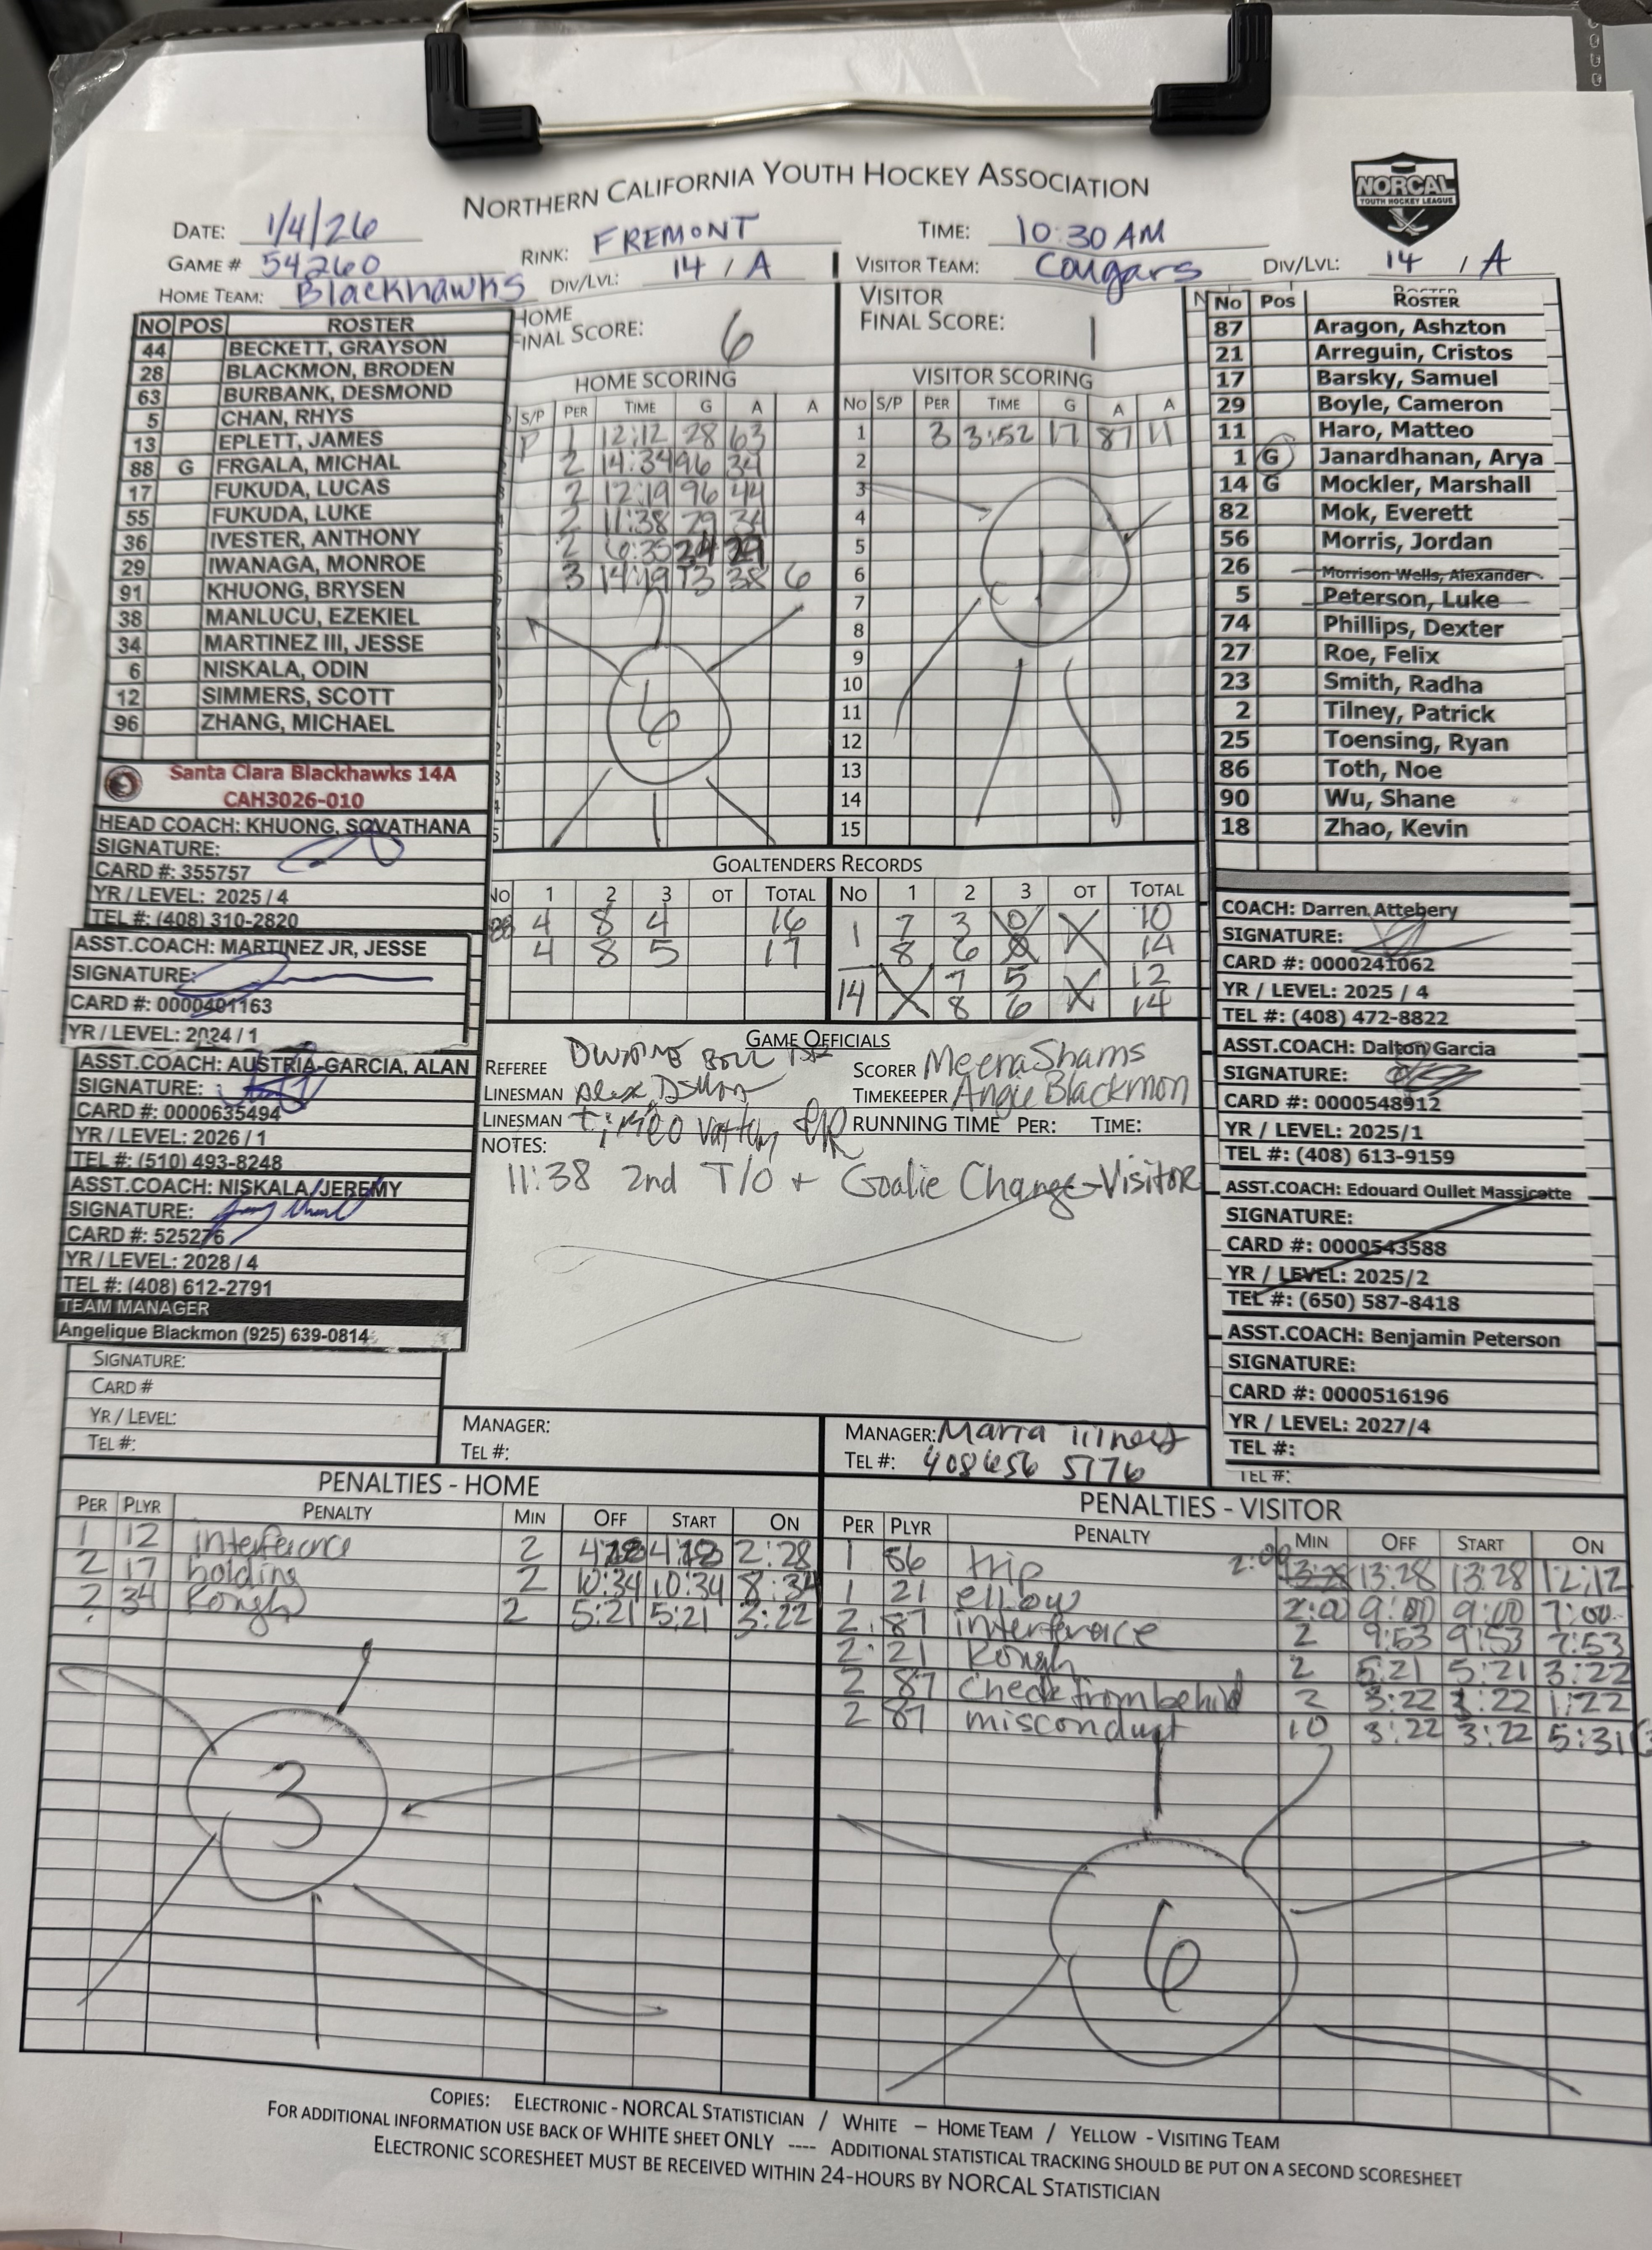 NORTHERN CALIFORNIA YOUTH HOCKEY ASSOCIATION
NORCAL
YOUTH HOCKEY LEAGUE
DATE: 1/4/26
RINK: FREMONT
TIME: 10:30 AM
GAME # 54260
DIV/LVL: 14 / A
VISITOR TEAM: Cougars
DIV/LVL: 14 / A
HOME TEAM: Blackhawks
NO POS ROSTER
44 BECKETT, GRAYSON
28 BLACKMON, BRODEN
63 BURBANK, DESMOND
5 CHAN, RHYS
13 EPLETT, JAMES
88 G FRGALA, MICHAL
17 FUKUDA, LUCAS
55 FUKUDA, LUKE
36 IVESTER, ANTHONY
29 IWANAGA, MONROE
91 KHUONG, BRYSEN
38 MANLUCU, EZEKIEL
34 MARTINEZ III, JESSE
6 NISKALA, ODIN
12 SIMMERS, SCOTT
96 ZHANG, MICHAEL
Santa Clara Blackhawks 14A
CAH3026-010
HEAD COACH: KHUONG, SOVATHANA
SIGNATURE:
CARD #: 355757
YR / LEVEL: 2025 / 4
TEL #: (408) 310-2820
ASST.COACH: MARTINEZ JR, JESSE
SIGNATURE:
CARD #: 0000401163
YR / LEVEL: 2024 / 1
ASST.COACH: AUSTRIA-GARCIA, ALAN
SIGNATURE:
CARD #: 0000635494
YR / LEVEL: 2026 / 1
TEL #: (510) 493-8248
ASST.COACH: NISKALA, JEREMY
SIGNATURE:
CARD #: 525276
YR / LEVEL: 2028 / 4
TEL #: (408) 612-2791
TEAM MANAGER
Angelique Blackmon (925) 639-0814
SIGNATURE:
CARD #
YR / LEVEL:
TEL #:
HOME
FINAL SCORE: 6
HOME SCORING
S/P PER TIME G A A
P 1 12:12 28 63
2 14:34 96 34
2 12:19 96 44
2 11:38 29 34
2 6:35 34 29
3 14:19 13 38 6
6
VISITOR
FINAL SCORE: 1
VISITOR SCORING
No S/P PER TIME G A A
1 3 3:52 17 87 11
2
3
4
5
6
7
8
9
10
11
12
13
14
15
1
GOALTENDERS RECORDS
NO 1 2 3 OT TOTAL
88 4 8 4 16
4 8 5 17
NO 1 2 3 OT TOTAL
1 7 3 0 X 10
8 6 14
14 X 7 5 X 12
8 6 14
GAME OFFICIALS
REFEREE
SCORER Meena Shams
LINESMAN
TIMEKEEPER Angie Blackmon
LINESMAN
RUNNING TIME PER: TIME:
NOTES:
11:38 2nd T/O + Goalie Change-Visitor
MANAGER:
TEL #:
MANAGER: Maria Tilney
TEL #: 408 656 5776
No Pos ROSTER
87 Aragon, Ashzton
21 Arreguin, Cristos
17 Barsky, Samuel
29 Boyle, Cameron
11 Haro, Matteo
1 G Janardhanan, Arya
14 G Mockler, Marshall
82 Mok, Everett
56 Morris, Jordan
26 Morrison-Wells, Alexander
5 Peterson, Luke
74 Phillips, Dexter
27 Roe, Felix
23 Smith, Radha
2 Tilney, Patrick
25 Toensing, Ryan
86 Toth, Noe
90 Wu, Shane
18 Zhao, Kevin
COACH: Darren Attebery
SIGNATURE:
CARD #: 0000241062
YR / LEVEL: 2025 / 4
TEL #: (408) 472-8822
ASST.COACH: Dalton Garcia
SIGNATURE:
CARD #: 0000548912
YR / LEVEL: 2025/1
TEL #: (408) 613-9159
ASST.COACH: Edouard Oullet Massicotte
SIGNATURE:
CARD #: 0000543588
YR / LEVEL: 2025/2
TEL #: (650) 587-8418
ASST.COACH: Benjamin Peterson
SIGNATURE:
CARD #: 0000516196
YR / LEVEL: 2027/4
TEL #:
TEL #:
PENALTIES - HOME
PER PLYR PENALTY MIN OFF START ON
1 12 interference 2 4:28 4:28 2:28
2 17 holding 2 10:34 10:34 8:34
2 34 Rough 2 5:21 5:21 3:22
3
PENALTIES - VISITOR
PER PLYR PENALTY MIN OFF START ON
1 56 trip 2:00 13:28 13:28 12:12
1 21 ellbow 2:00 9:00 9:00 7:00
2 87 interferace 2 9:53 9:53 7:53
2 21 Rough 2 5:21 5:21 3:22
2 87 Check from behind 2 3:22 3:22 1:22
2 87 misconduct 10 3:22 3:22 5:31
6
COPIES: ELECTRONIC - NORCAL STATISTICIAN / WHITE – HOME TEAM / YELLOW - VISITING TEAM
FOR ADDITIONAL INFORMATION USE BACK OF WHITE SHEET ONLY ---- ADDITIONAL STATISTICAL TRACKING SHOULD BE PUT ON A SECOND SCORESHEET
ELECTRONIC SCORESHEET MUST BE RECEIVED WITHIN 24-HOURS BY NORCAL STATISTICIAN